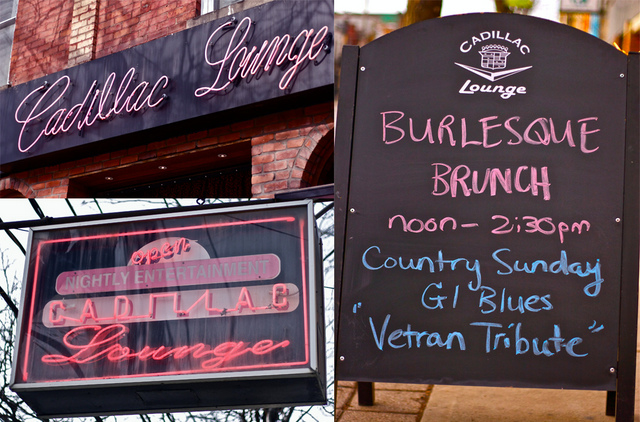 Cadillac Lounge
open
NIGHTLY ENTERTAINMENT
CADILLAC
Lounge
CADILLAC
Lounge
BURLESQUE
BRUNCH
noon - 2:30pm
Country Sunday
GI Blues
"Vetran Tribute"